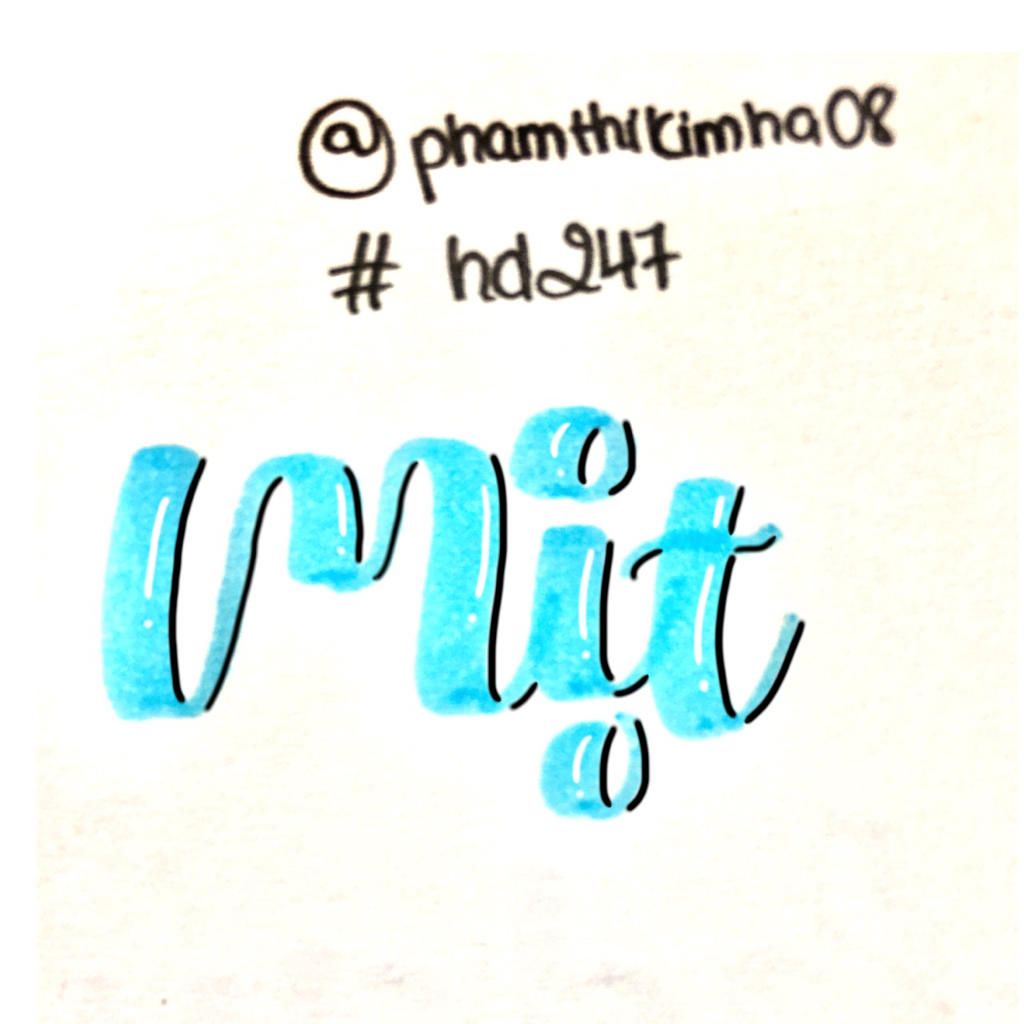 @phamthikimha08
# hd247
Mịt